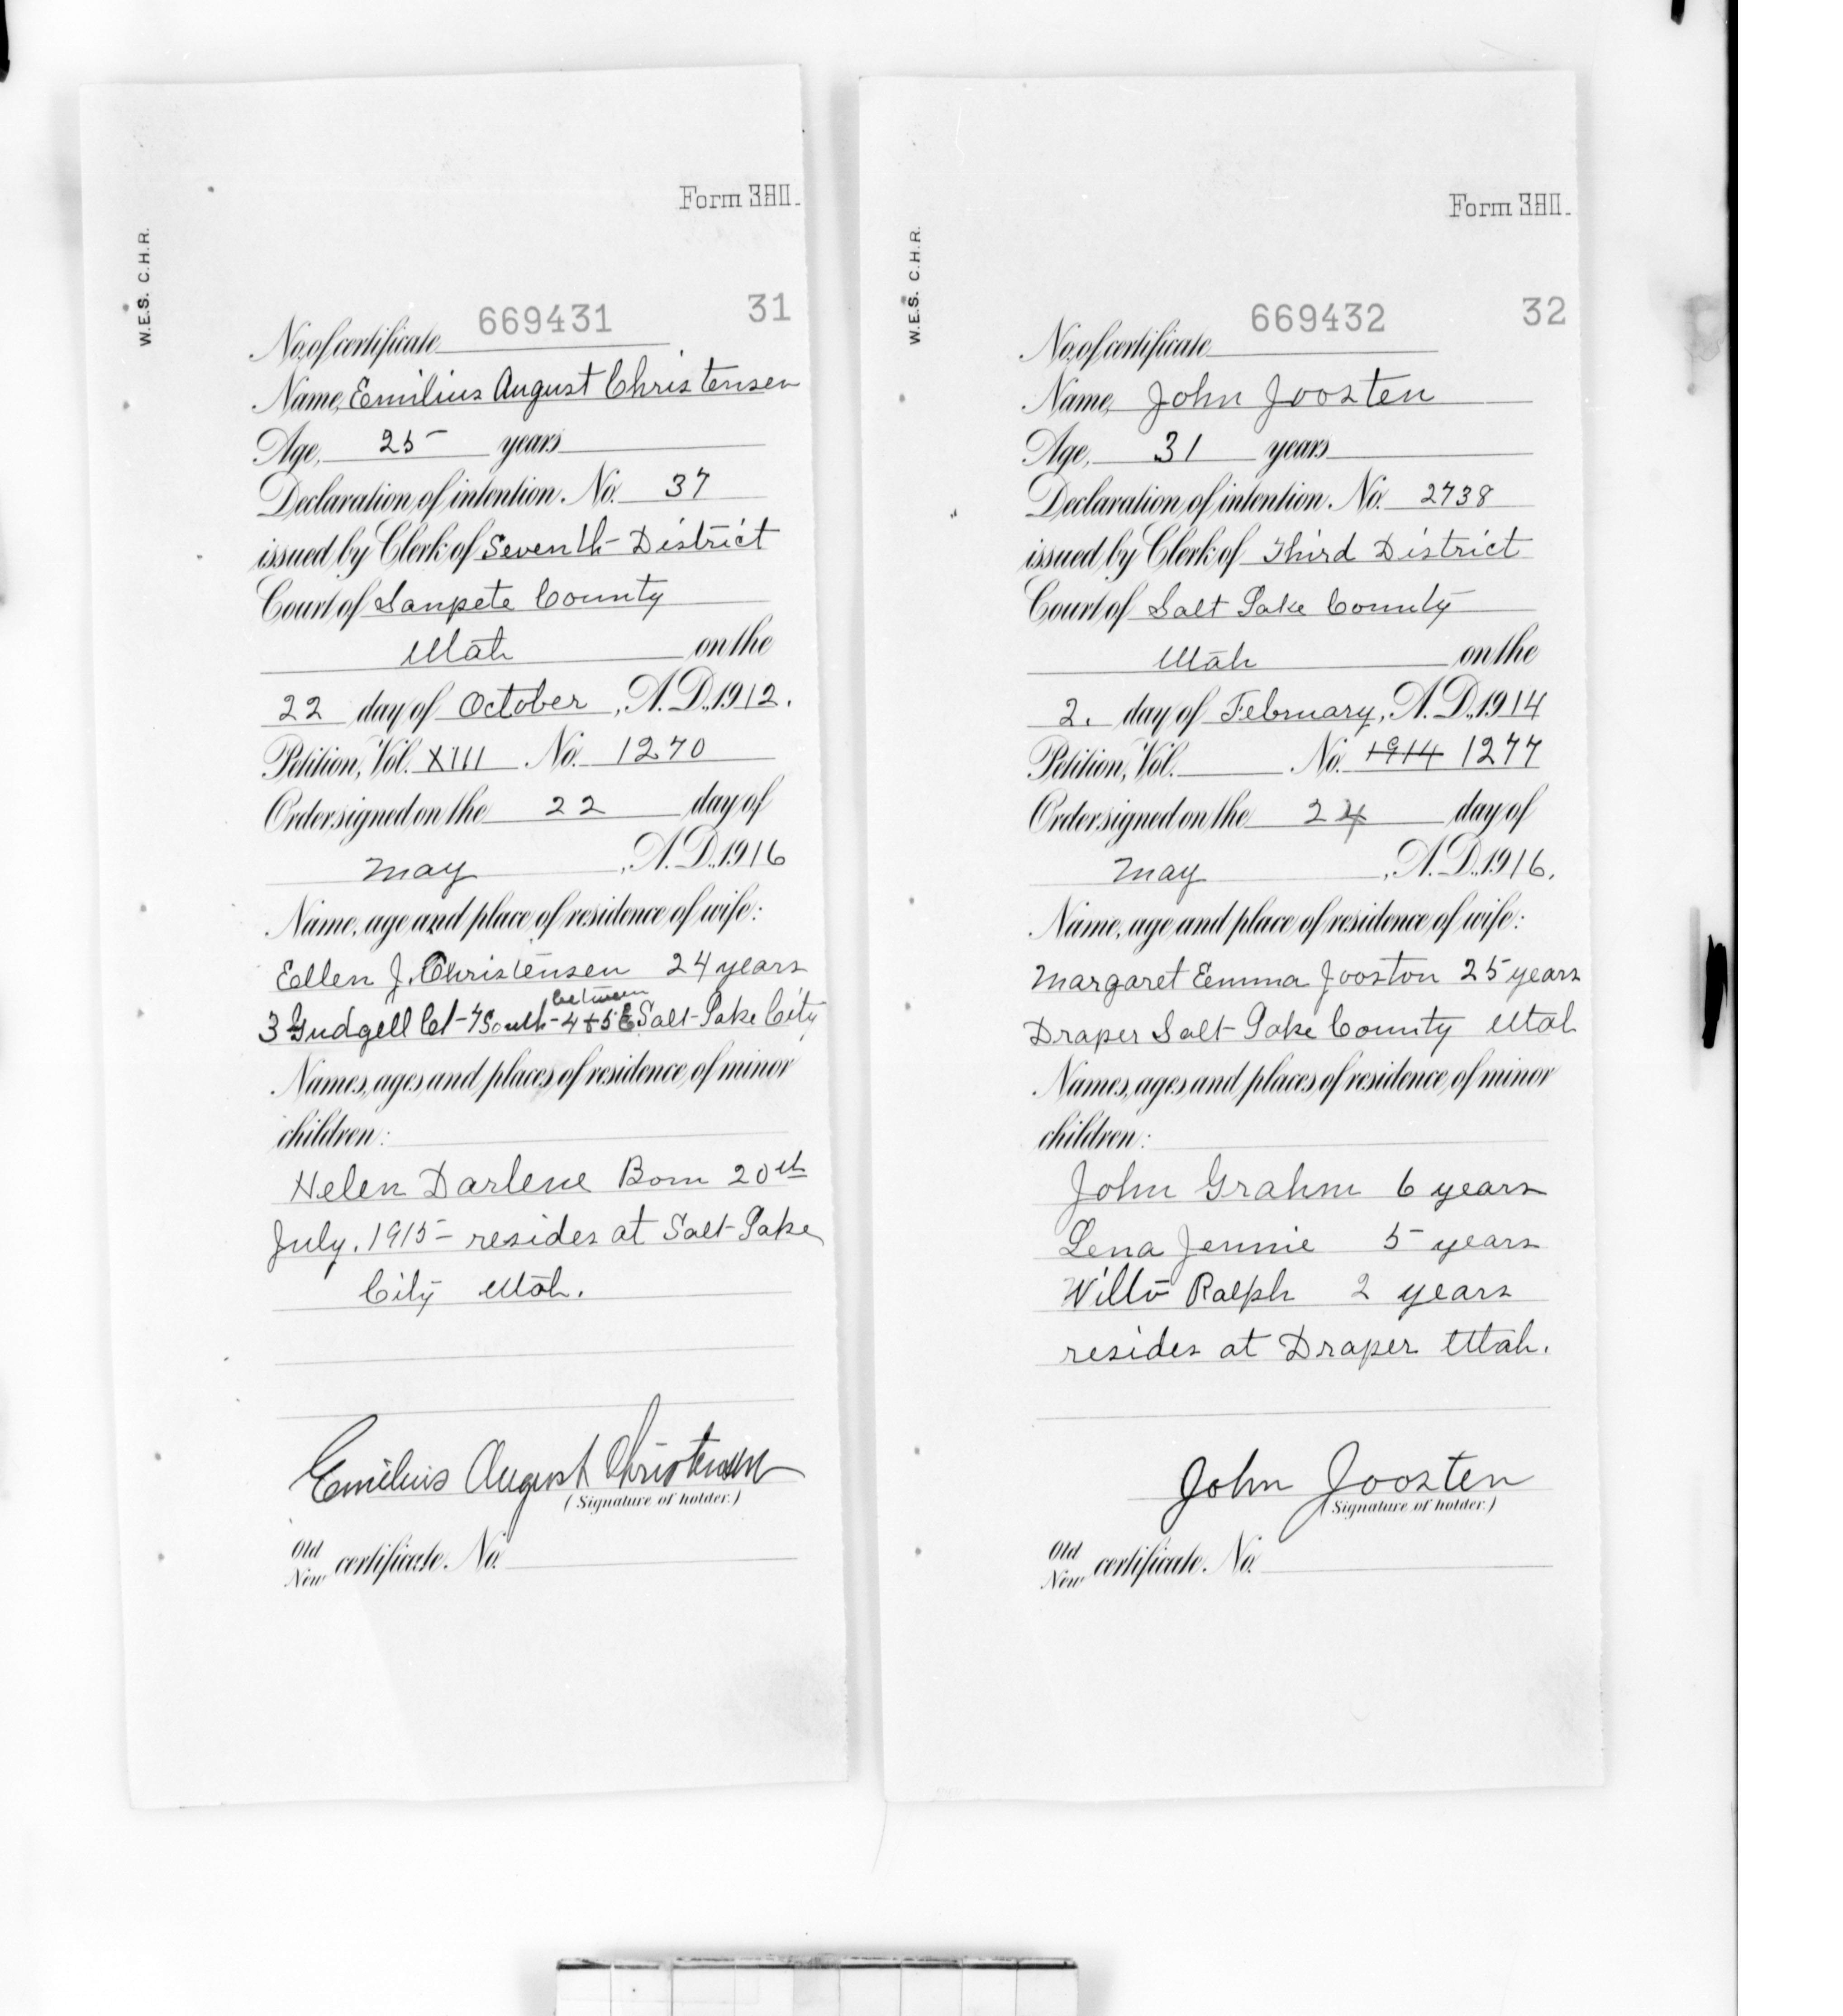 Form 380.
W.E.S. C.H.R.
669431 31
No. of certificate
Name, Emilius August Christensen
Age, 25 years
Declaration of intention. No. 37
issued by Clerk of Seventh District
Court of Sanpete County
Utah on the
22 day of October, A.D. 1912.
Petition, Vol. XIII No. 1270
Order signed on the 22 day of
May, A.D. 1916
Name, age and place of residence of wife:
Ellen J. Christensen 24 years
between
3 Gudgell Ct - 7 South - 4 + 5 E Salt Lake City
Names, ages and places of residence of minor
children:
Helen Darlene Born 20th
July. 1915 - resides at Salt Lake
City Utah.
Emilius August Christensen
(Signature of holder.)
Old
New certificate. No.
Form 380.
W.E.S. C.H.R.
669432 32
No. of certificate
Name, John Joosten
Age, 31 years
Declaration of intention. No. 2738
issued by Clerk of Third District
Court of Salt Lake County
Utah on the
2. day of February, A.D. 1914
Petition, Vol. No. 1914 1277
Order signed on the 24 day of
May, A.D. 1916.
Name, age and place of residence of wife:
Margaret Emma Jooston 25 years
Draper Salt Lake County Utah
Names, ages and places of residence of minor
children:
John Grahm 6 years
Lena Jennie 5 years
Ralph 2 years
resides at Draper Utah.
John Joosten
(Signature of holder.)
Old
New certificate. No.